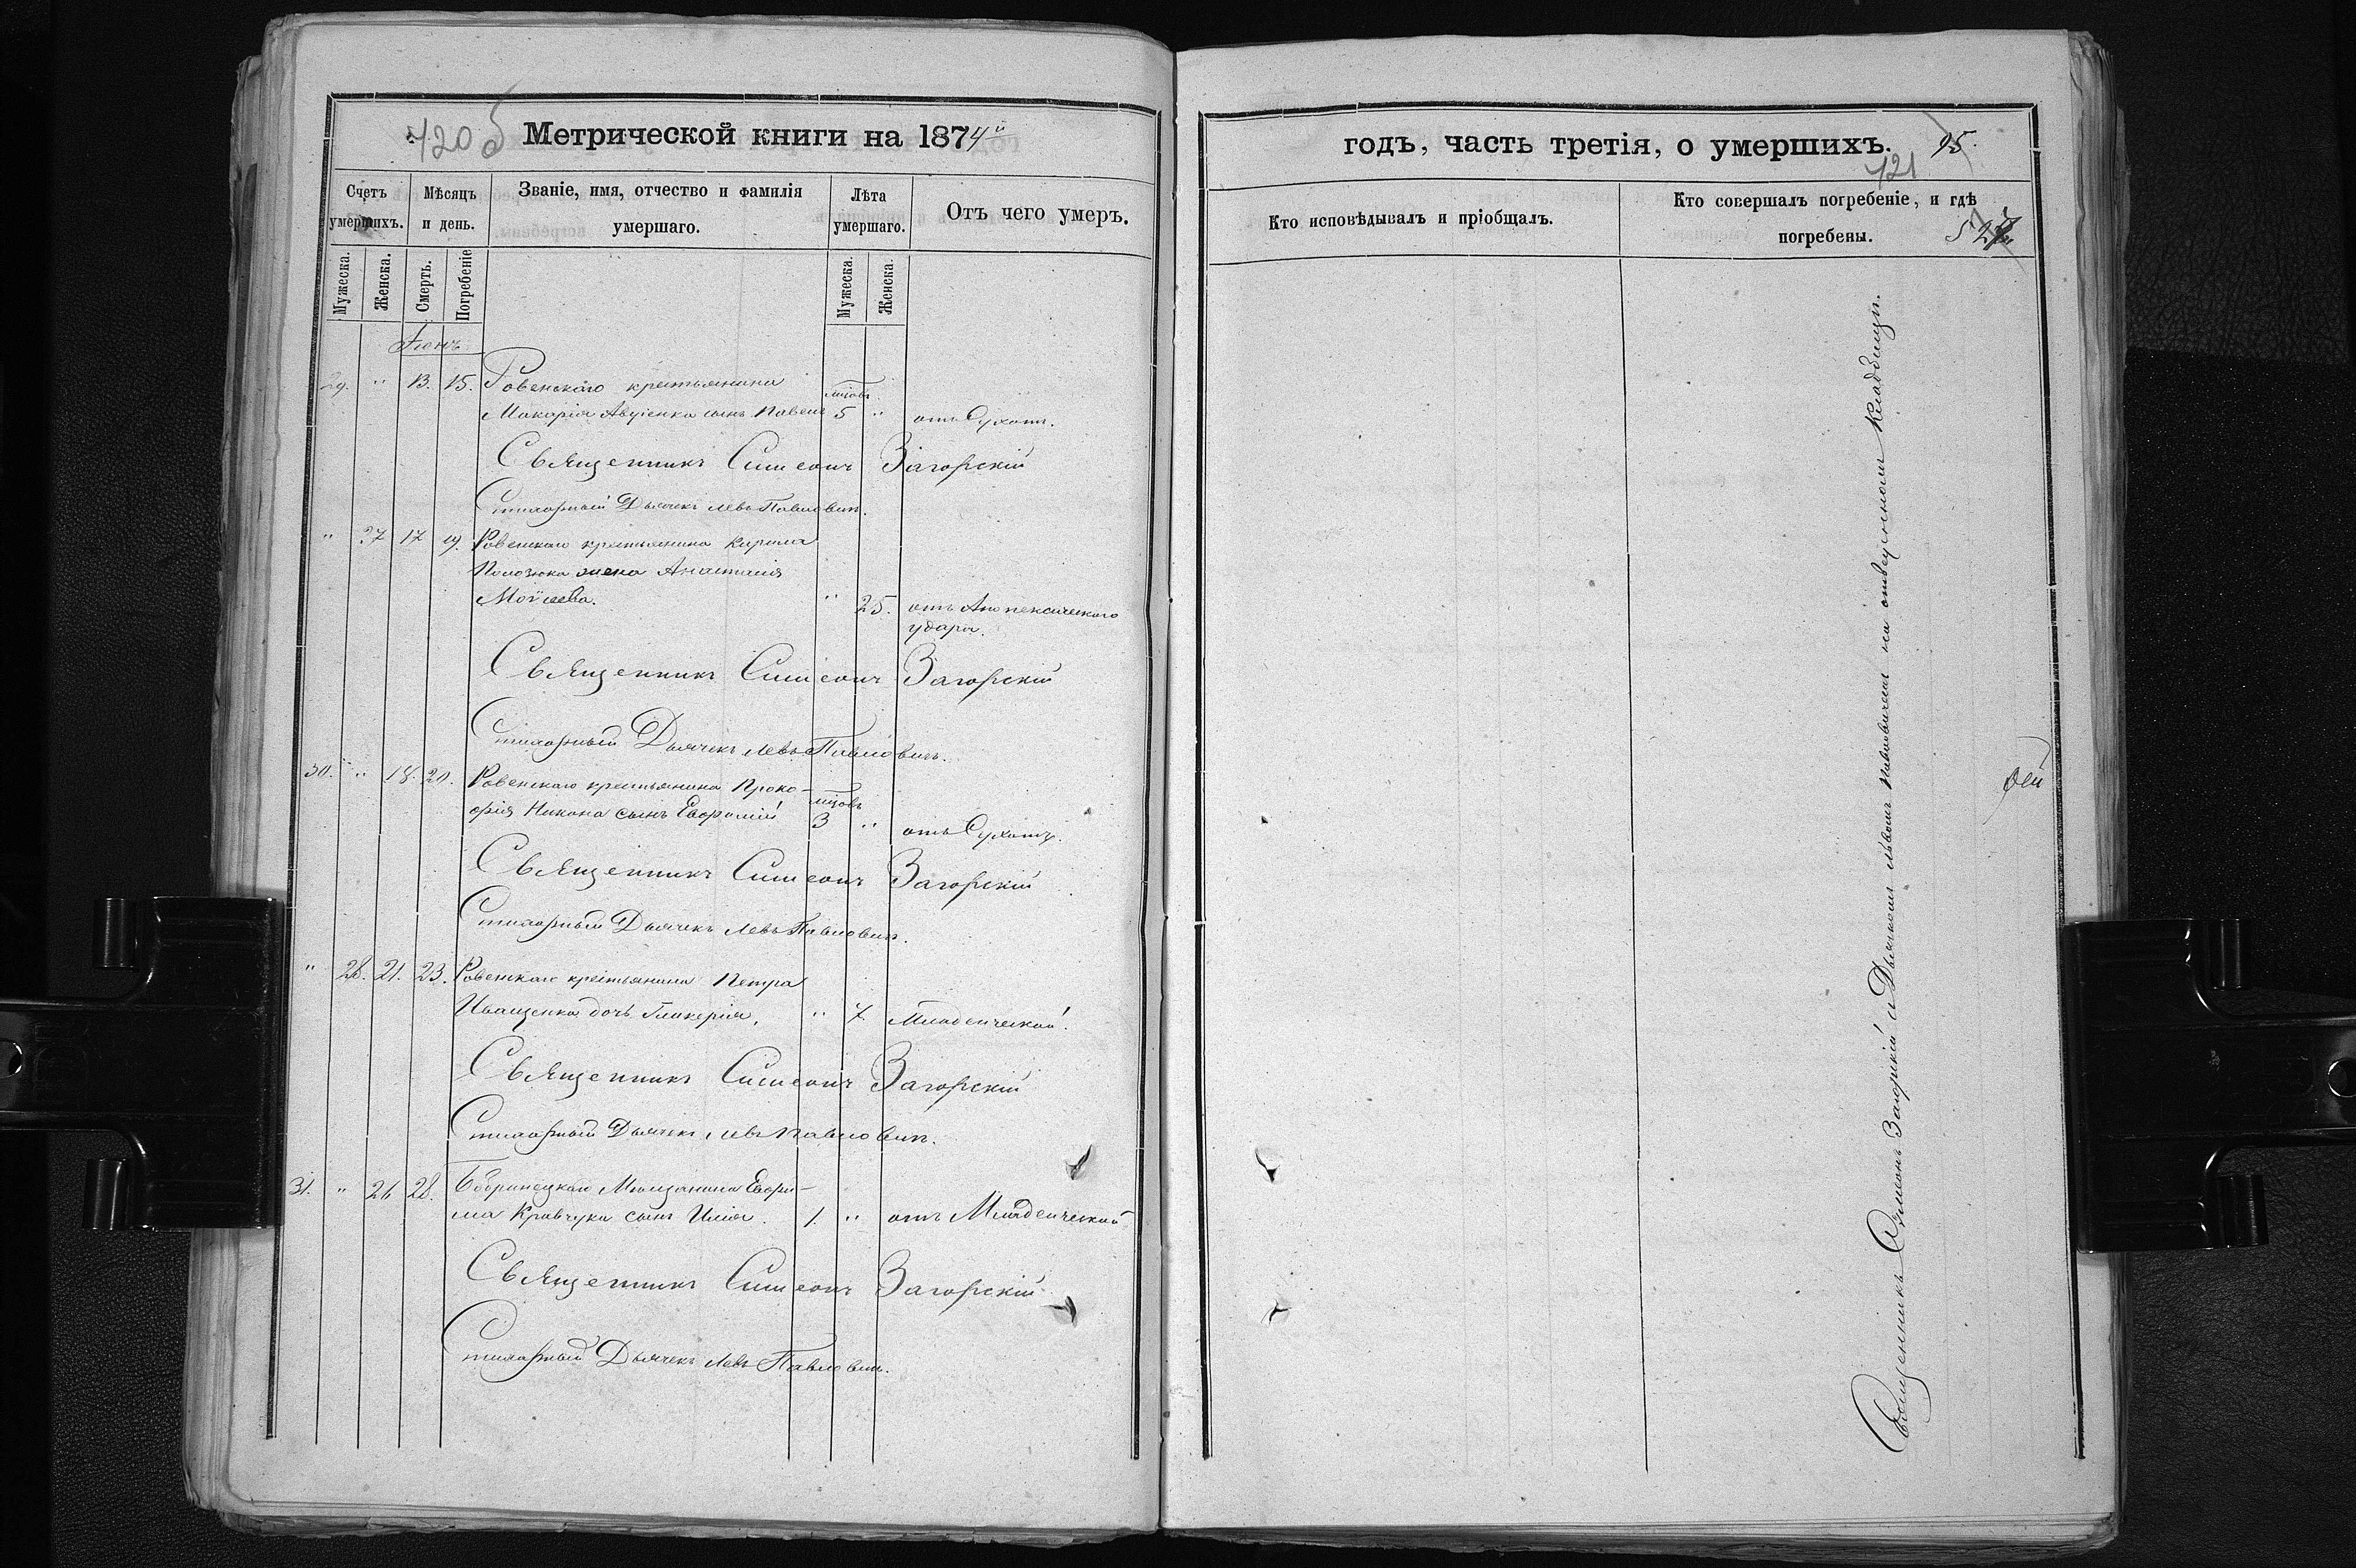 Метрической книги на 1874й
Счетъ умершихъ.
Мѣсяцъ и день.
Званіе, имя, отчество и фамилія умершаго.
Лѣта умершаго.
Отъ чего умеръ.
Мужеска.
Женска.
Смерть.
Погребеніе
Мужеска.
Женска.
Іюнь
29. " 13. 15. Ровенскаго крестьянина
мцовъ
Макарія сынъ Павелъ 5 " отъ Сухотъ.
Священникъ Симеонъ Загорскій
Стихарный Дьячекъ Левъ Павловичъ.
" 27 17 19. Ровенскаго крестьянина Кирила
жена Анастасія
Моѵсеева. " 25. отъ Апоплексическаго
удара.
Священникъ Симеонъ Загорскій
Стихарный Дьячекъ Левъ Павловичъ.
30. " 18. 20. Ровенскаго крестьянина Проко-
мцовъ
фія Никона сынъ Евфимій 3 " отъ Сухотъ.
Священникъ Симеонъ Загорскій
Стихарный Дьячекъ Левъ Павловичъ.
" 28. 21. 23. Ровенскаго крестьянина Петра
Иващенка дочь Гликерія. " 7. Младенческой.
Священникъ Симеонъ Загорскій
Стихарный Дьячекъ Левъ Павловичъ.
31. " 26 28. Бобринецкаго Мѣщанина Евфи-
ма Кравчука сынъ Илія. 1. " отъ Младенческой
Священникъ Симеонъ Загорскій
Стихарный Дьячекъ Левъ Павловичъ.
годъ, часть третія, о умершихъ. 95.
121
Кто исповѣдывалъ и пріобщалъ.
Кто совершалъ погребеніе, и гдѣ
погребены.
Священникъ Симеонъ Загорскій и Дьячкомъ Львомъ Павловичемъ на отведенномъ Кладбищѣ.